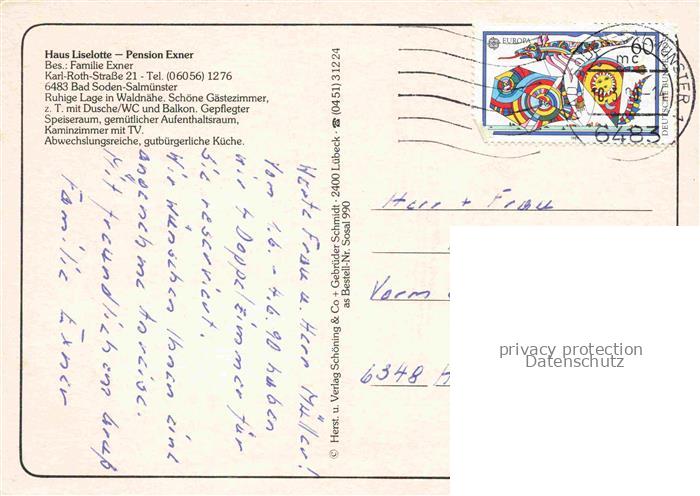 Haus Liselotte – Pension Exner
Bes.: Familie Exner
Karl-Roth-Straße 21 - Tel. (06056) 1276
6483 Bad Soden-Salmünster
Ruhige Lage in Waldnähe. Schöne Gästezimmer,
z. T. mit Dusche/WC und Balkon. Gepflegter
Speiseraum, gemütlicher Aufenthaltsraum,
Kaminzimmer mit TV.
Abwechslungsreiche, gutbürgerliche Küche.
Werte Frau u. Herr Müller!
Vom 1.6. - 4.6.90 haben
wir 1 Doppelzimmer für
Sie reserviert.
Wir wünschen Ihnen eine
angenehme Anreise.
Mit freundlichem Gruß
Familie Exner
© Herst. u. Verlag Schöning & Co + Gebrüder Schmidt · 2400 Lübeck · ☎ (0451) 31224
as Bestell-Nr. Sosal 990
EUROPA
60
DEUTSCHE BUNDES
MÜNSTER 1
mc
6483
Herr + Frau
Vorm
6348 H
privacy protection
Datenschutz